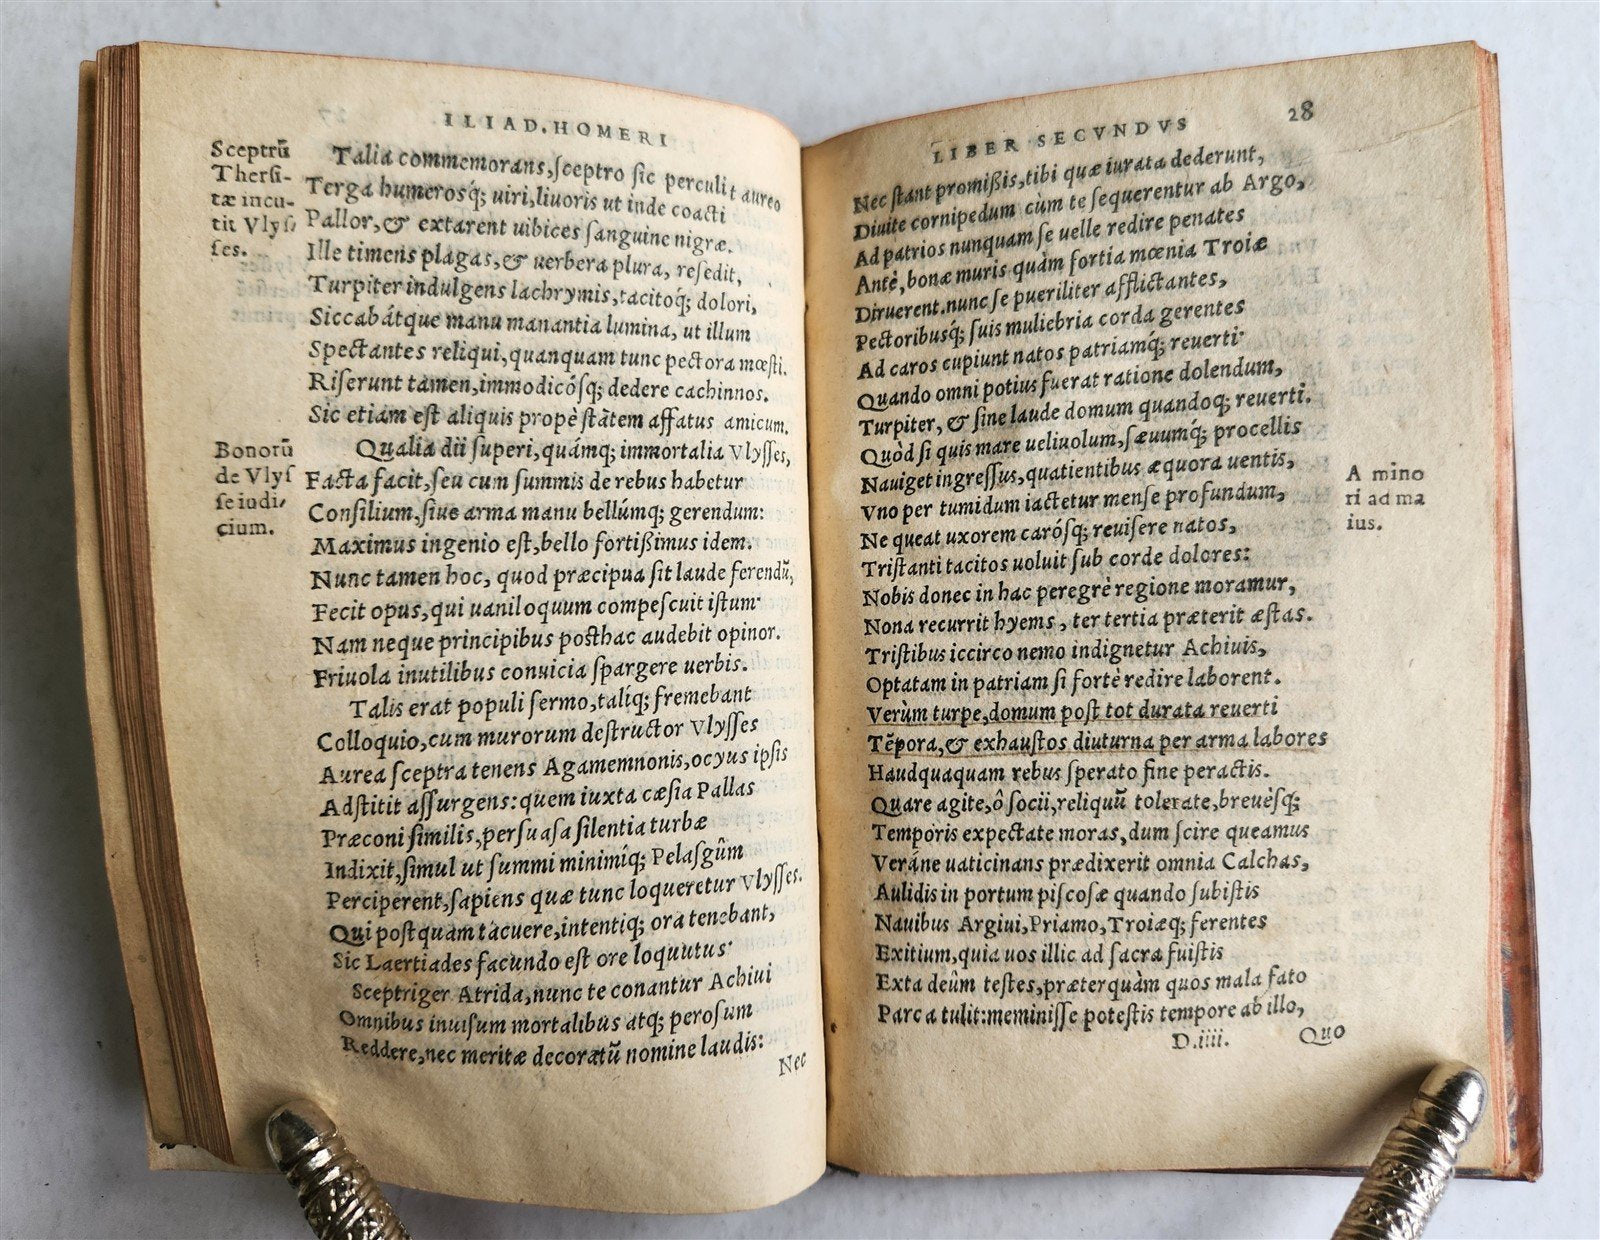 ILIAD. HOMERI
Sceptrū
Thersi-
tæ incu-
tit Vlyſ-
ſes.
Talia commemorans, ſceptro ſic perculit aureo
Terga humerosq́; uiri, liuoris ut inde coacti
Pallor, & extarent uibices ſanguine nigræ.
Ille timens plagas, & uerbera plura, reſedit,
Turpiter indulgens lachrymis, tacitoq́; dolori,
Siccabátque manu manantia lumina, ut illum
Spectantes reliqui, quanquam tunc pectora mœsti.
Riſerunt tamen, immodicósq; dedere cachinnos.
Sic etiam est aliquis propè stātem affatus amicum.
Bonorū
de Vlyſ
ſe iudi-
cium.
Qualia dii ſuperi, quámq; immortalia Vlyſſes,
Facta facit, ſeu cum ſummis de rebus habetur
Conſilium, ſiue arma manu bellúmq; gerendum:
Maximus ingenio est, bello fortißimus idem.
Nunc tamen hoc, quod præcipua ſit laude ferendū,
Fecit opus, qui uaniloquum compeſcuit iſtum·
Nam neque principibus posthac audebit opinor.
Friuola inutilibus conuicia ſpargere uerbis.
Talis erat populi ſermo, talíq; fremebant
Colloquio, cum murorum destructor Vlyſſes
Aurea ſceptra tenens Agamemnonis, ocyus ipſis
Adstitit aſſurgens: quem iuxta cæſia Pallas
Præconi ſimilis, perſuaſa ſilentia turbæ
Indixit, ſimul ut ſummi minimíq; Pelaſgûm
Perciperent, ſapiens quæ tunc loqueretur Vlyſſes.
Qui postquam tacuere, intentiq; ora tenebant,
Sic Laertiades facundo est ore loquutus·
Sceptriger Atrida, nunc te conantur Achiui
Omnibus inuiſum mortalibus atq; peroſum
Reddere, nec meritæ decoratū nomine laudis:
Nec
LIBER SECVNDVS
28
Nec ſtant promißis, tibi quæ iurata dederunt,
Diuite cornipedum cùm te ſequerentur ab Argo,
Ad patrios nunquam ſe uelle redire penates
Antè, bonæ muris quàm fortia mœnia Troiæ
Diruerent. nunc ſe pueriliter afflictantes,
Pectoribusq́; ſuis muliebria corda gerentes
Ad caros cupiunt natos patriamq́; reuerti·
Quando omni potius fuerat ratione dolendum,
Turpiter, & ſine laude domum quandoq; reuerti.
Quòd ſi quis mare ueliuolum, ſæuumq́; procellis
Nauiget ingreſſus, quatientibus æquora uentis,
Vno per tumidum iactetur menſe profundum,
Ne queat uxorem carósq; reuiſere natos,
Triſtanti tacitos uoluit ſub corde dolores:
Nobis donec in hac peregrè regione moramur,
Nona recurrit hyems, ter tertia præterit æſtas.
Triſtibus iccirco nemo indignetur Achiuis,
Optatam in patriam ſi fortè redire laborent.
Verùm turpe, domum poſt tot durata reuerti
Tēpora, & exhauſtos diuturna per arma labores
Haudquaquam rebus ſperato fine peractis.
Quare agite, ô ſocii, reliquū tolerate, breuèsq;
Temporis expectate moras, dum ſcire queamus
Veráne uaticinans prædixerit omnia Calchas,
Aulidis in portum piſcoſæ quando ſubiſtis
Nauibus Argiui, Priamo, Troiæq; ferentes
Exitium, quia uos illic ad ſacra fuiſtis
Exta deûm teſtes, præterquàm quos mala fato
Parca tulit: meminiſſe poteſtis tempore ab illo,
A mino
ri ad ma
ius.
D.iiii.
Quo